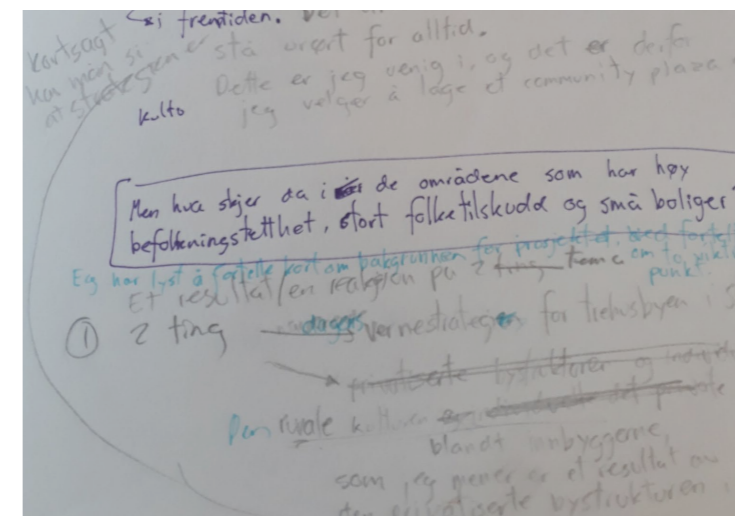 i fremtiden.
kortsagt
kan man si
at strategien er
stå urørt for alltid.
Dette er jeg uenig i, og det er derfor
jeg velger å lage et community plaza
kulto
Men hva skjer da i de områdene som har høy
befolkningstetthet, stort folketilskudd og små boliger
Eg har lyst å fortelle kort om bakgrunnen for prosjektet, ved
om to
punkt.
Et resultat/en reaksjon på 2 ting
① 2 ting dagens vernestrategien for trehusbyen i S
privatiserte bystrukturer og
Den rurale kulturen det private
blandt innbyggerne,
som jeg mener er et resultat av
den privatiserte bystrukturen